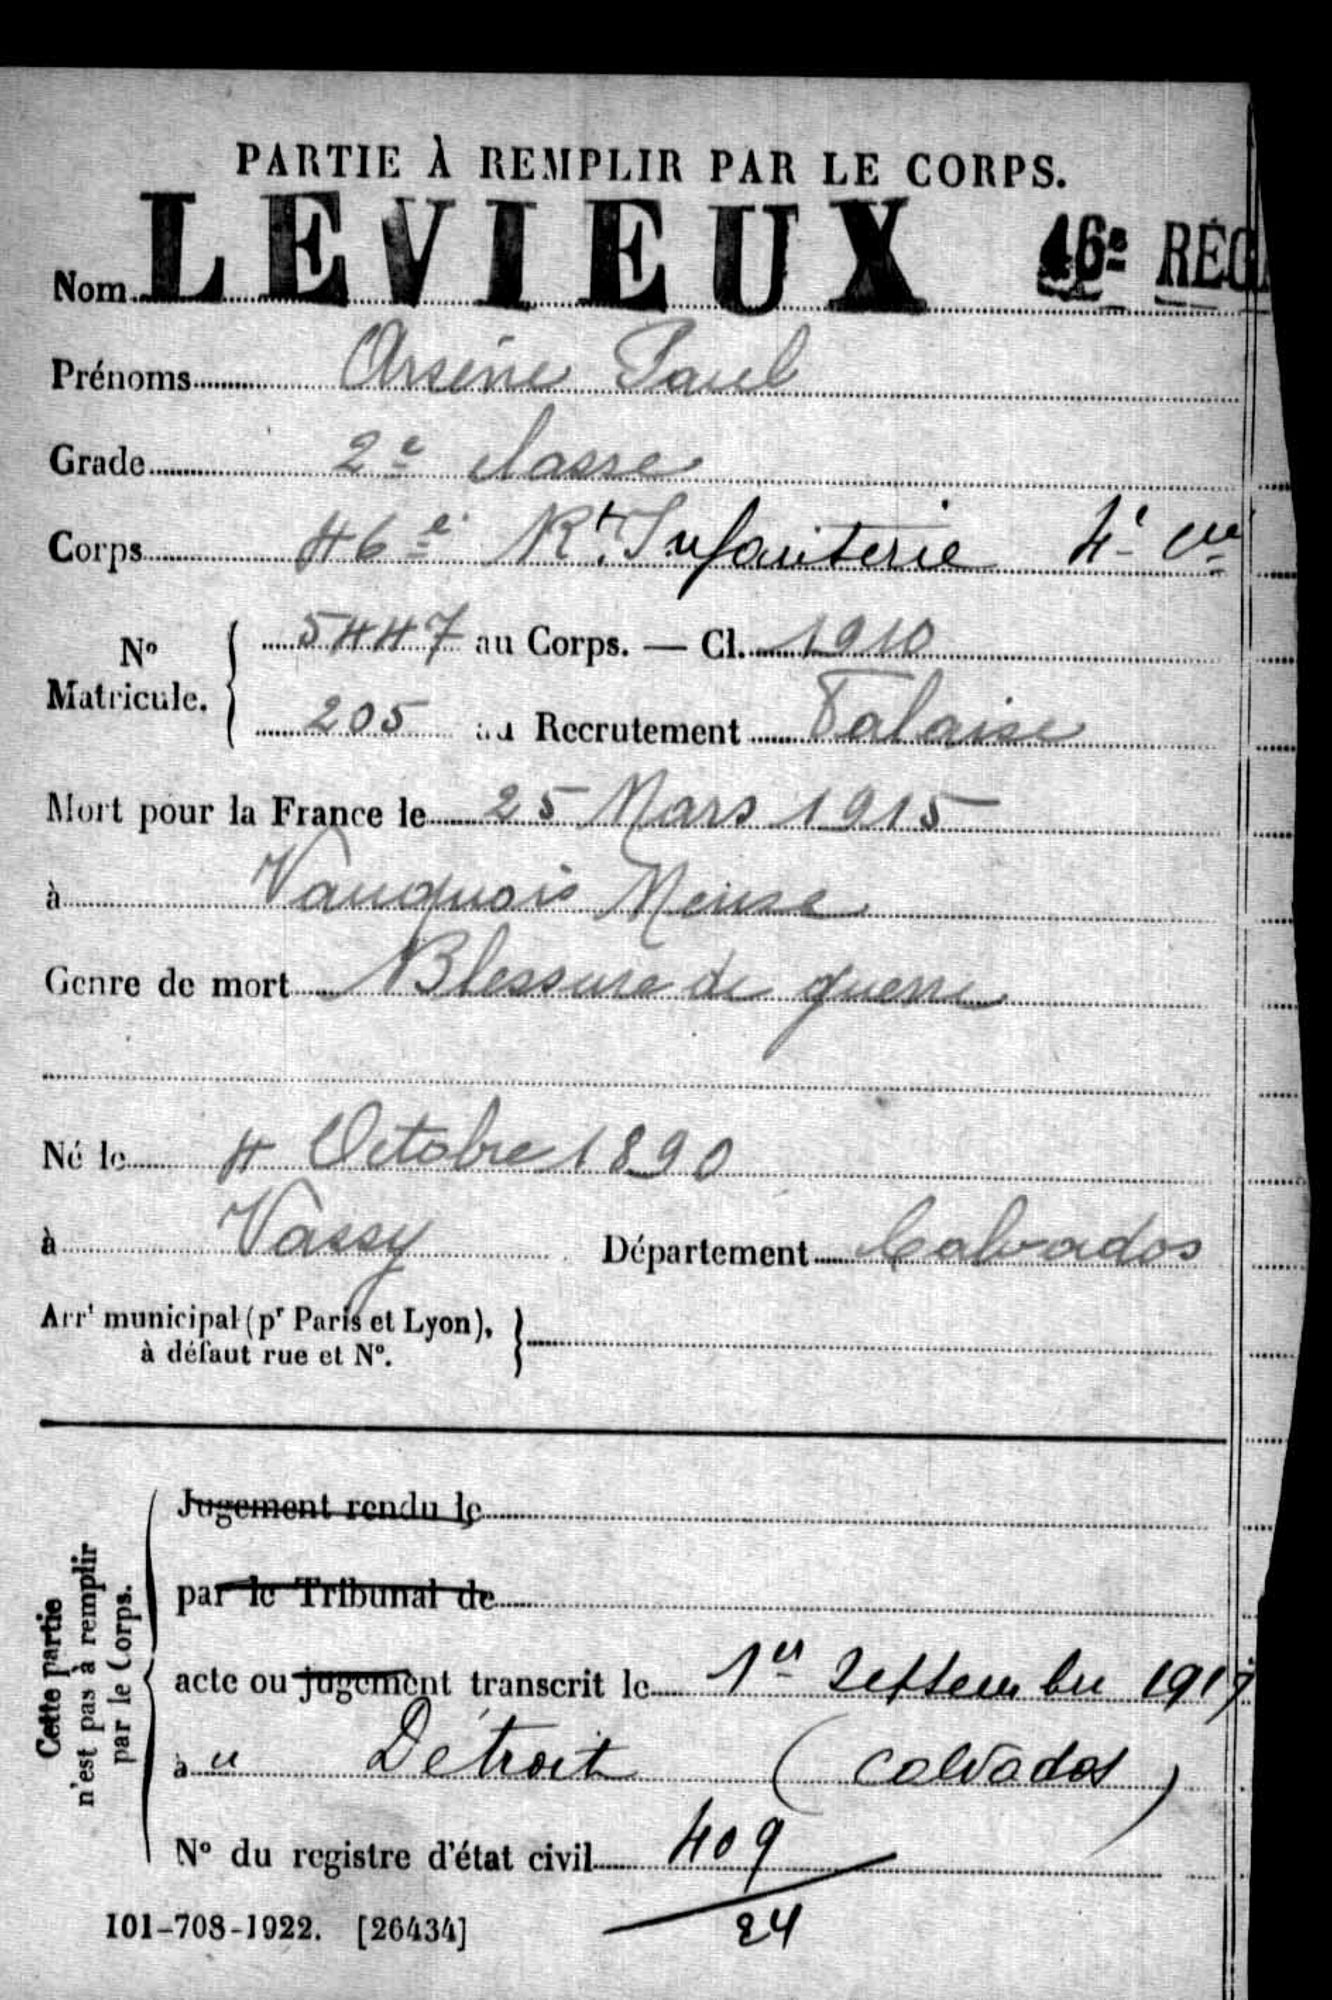 PARTIE À REMPLIR PAR LE CORPS.
Nom LEVIEUX 46e RÉG
Prénoms Arsène Paul
Grade 2e classe
Corps 46e Rt Infanterie 4e Cie
No Matricule. 5447 au Corps. — Cl. 1910
205 au Recrutement Falaise
Mort pour la France le 25 Mars 1915
à Vauquois Meuse
Genre de mort Blessure de guerre
Né le 4 Octobre 1890
à Vassy Département Calvados
Arrt municipal (pr Paris et Lyon),
à défaut rue et No.
Cette partie
n'est pas à remplir
par le Corps.
Jugement rendu le
par le Tribunal de
acte ou jugement transcrit le 1er Septembre 1917
à u Détroit (Calvados)
No du registre d'état civil 409
24
101-708-1922. [26434]